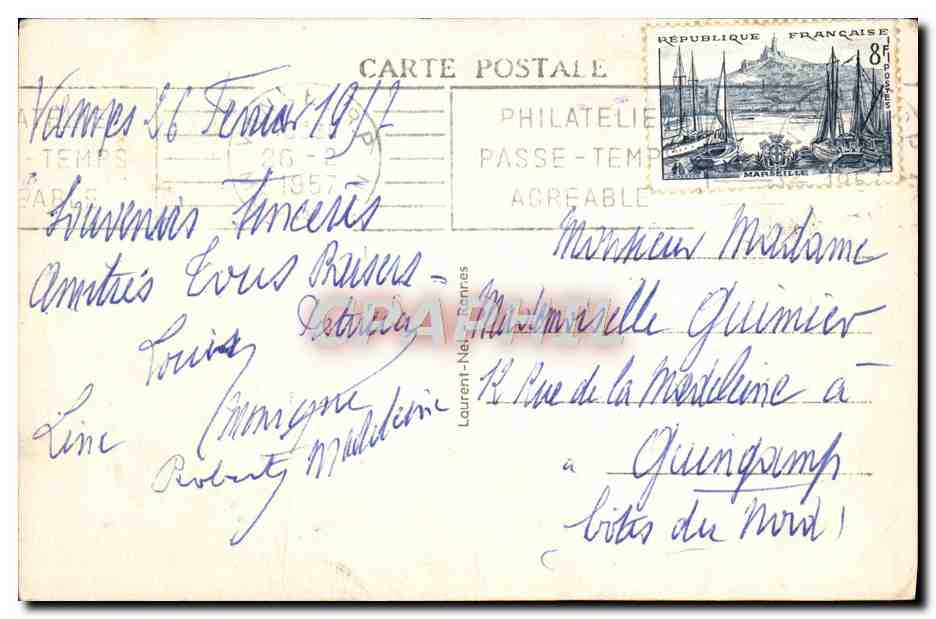 CARTE POSTALE
RÉPUBLIQUE FRANÇAISE
8F
POSTES
MARSEILLE
PHILATELIE
PASSE-TEMP
AGREABLE
-TEMPS
26-2
1957
Vannes 26 Fevrier 1957
Souvenirs Sincères
Amitiés Tous Baisers
Patricia
Louis
Monique
Line
Roberty Madeleine
CPAPHIL
Laurent-Nel - Rennes
Monsieur Madame
Mademoiselle Guimier
12 Rue de la Madeleine à
à Guingamp
Côtes du Nord